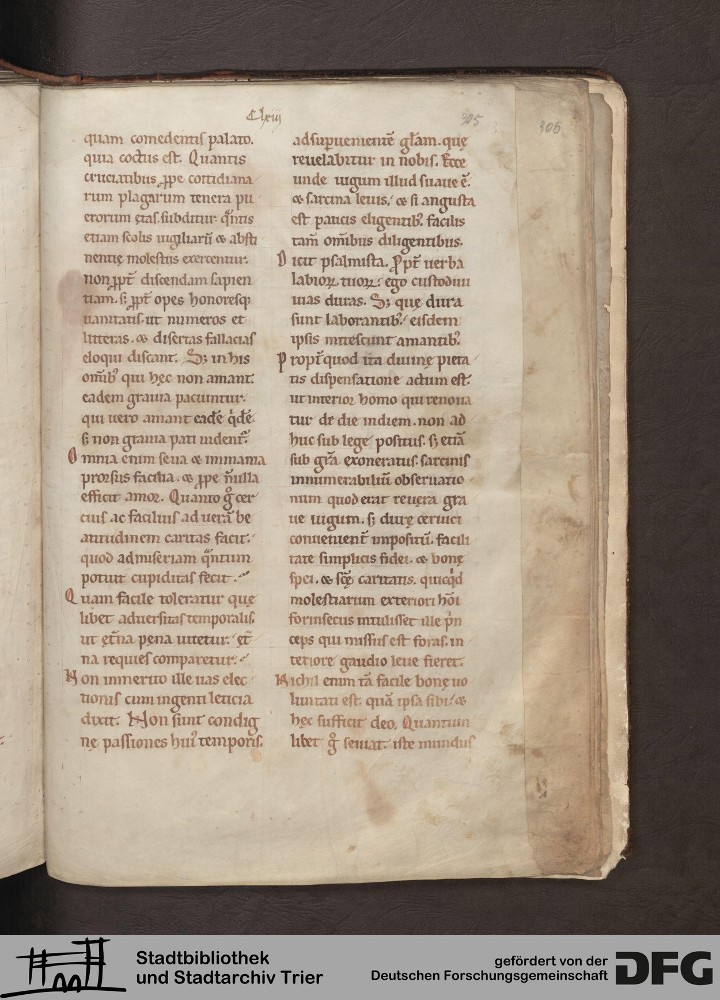 Clxiij
305
306
quam comedentis palato.
quia coctus est. Quantis
cruciatibus ꝓpe cottidiana
rum plagarum tenera pu
erorum ętas subditur. q̃ntis
etiam scolis uigiliarũ & absti
nentię molestiis exercentur.
non ꝓpt̃ discendam sapien
tiam. s; ꝓpt̃ opes honoresq;
uanitatis. ut numeros et
litteras. & disertas fallacias
eloqui discant. S; in his
om̃ib; qui hęc non amant.
eadem grauia patiuntur.
qui uero amant eadẽ q̇dẽ.
s; non grauia pati uident̃.
Omnia enim seua & inmania
prorsus facilia. & ꝓpe ñulla
efficit amor. Quanto g̊ cer
cius ac facilius ad uerã be
atitudinem caritas facit.
quod ad miseriam q̃ntum
potuit cupiditas fecit.
Quam facile toleratur quę
libet aduersitas temporalis.
ut et̃na pena uitetur. et̃
na requies comparetur.
Non inmerito ille uas elec
tionis cum ingenti leticia
dixit. Non sunt condig
nę passiones hui᾽ temporis.
ad suꝑuenientẽ gl̃am. quę
reuelabitur in nobis. Ecce
unde iugum illud suaue ẽ.
& sarcina leuis. & si angusta
est paucis eligentib; facilis
tam̃ omĩbus diligentibus.
Dicit psalmista. Ꝓpt̃ uerba
labioꝝ tuoꝝ ego custodiui
uias duras. S; quę dura
sunt laborantib; eisdem
ipsis mitescunt amantib;
Propt̃ quod ita diuinę pieta
tis dispensatione actum est.
ut interior homo qui renoua
tur de die in diem. non ad
huc sub lege positus. s; etiã
sub gr̃a exoneratus sarcinis
innumerabiliũ obseruatio
num quod erat reuera gra
ue iugum. s; durę ceruici
conuenient̃ impositũ. facili
tate simplicis fidei. & bonę
spei. & sc̃ę caritatis. quicq̇d
molestiarum exteriori hõi
forinsecus intulisset ille p̃n
ceps qui missus est foras. in
teriore gaudio leue fieret.
Nichil enim tã facile bonę uo
luntati est. quã ipsa sibi. &
hęc sufficit deo. Quantum
libet g̊ seuiat iste mundus
Stadtbibliothek
und Stadtarchiv Trier
gefördert von der
Deutschen Forschungsgemeinschaft
DFG